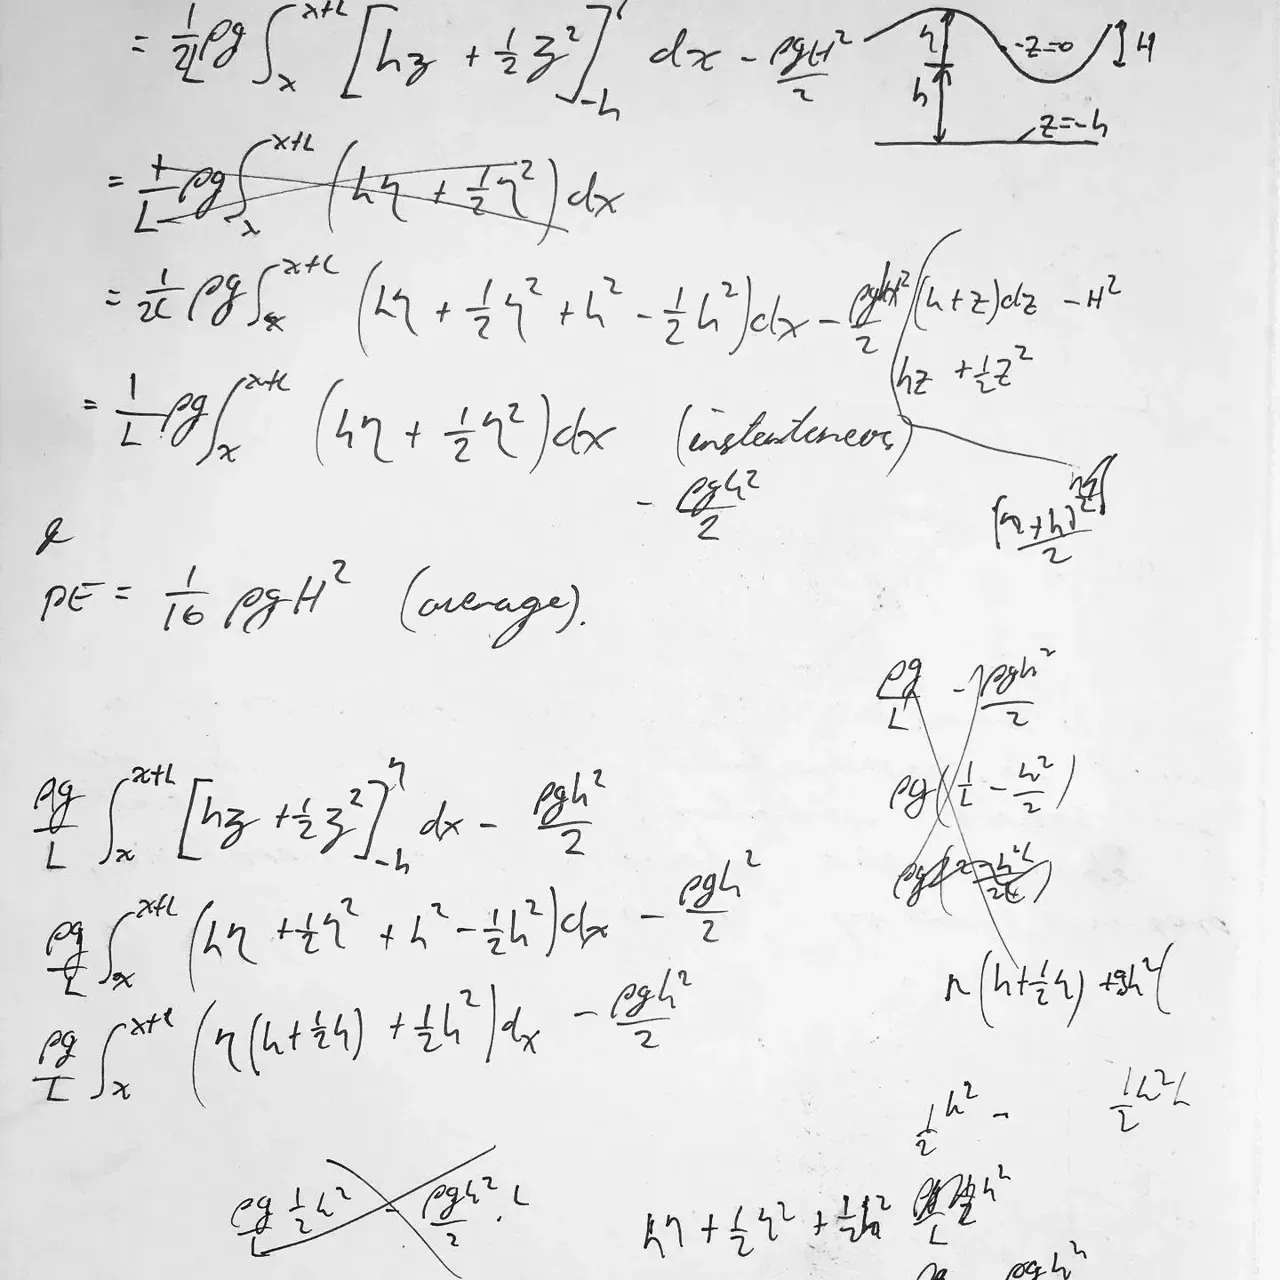 = 1/2L ρg ∫_x^{x+L} [hz + 1/2 z²]_{-h} dx - ρgH²/2
η
h
z=0
H
z=-h
= 1/L ρg ∫_x^{x+L} (hη + 1/2 η²) dx
= 1/2L ρg ∫_x^{x+L} (hη + 1/2 η² + h² - 1/2 h²) dx -
(h+z)dz - H²
hz + 1/2 z²
= 1/L ρg ∫_x^{x+L} (hη + 1/2 η²) dx (instantaneous)
- ρgh²/2
PE = 1/16 ρgH² (average).
ρg/L - ρgh²/2
ρg(1/L - h²/2)
ρg/L ∫_x^{x+L} [hz + 1/2 z²]_{-h}^η dx - ρgh²/2
ρg/L ∫_x^{x+L} (hη + 1/2 η² + h² - 1/2 h²) dx - ρgh²/2
η(h + 1/2 η)
ρg/L ∫_x^{x+L} (η(h + 1/2 η) + 1/2 h²) dx - ρgh²/2
1/2 h² - 1/2 h² L
ρg/L 1/2 h² - ρgh²/2 . L
hη + 1/2 η² + 1/2 h²
ρgh²